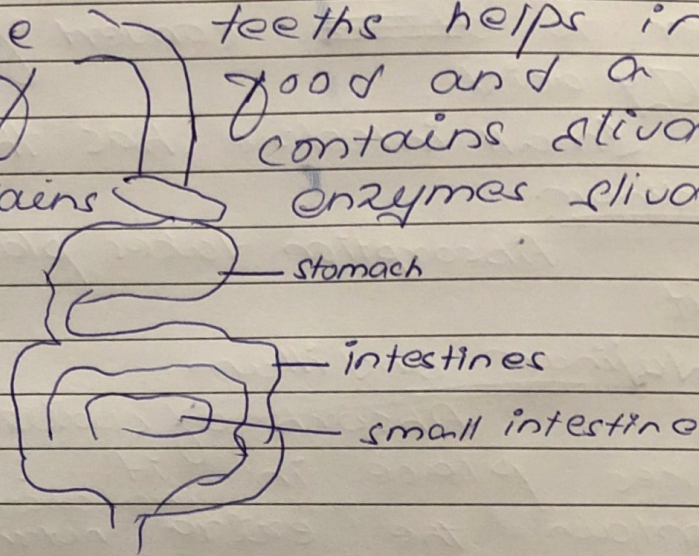 e teeths helps in
good and a
contains sliva
ains enzymes sliva
stomach
intestines
small intestine